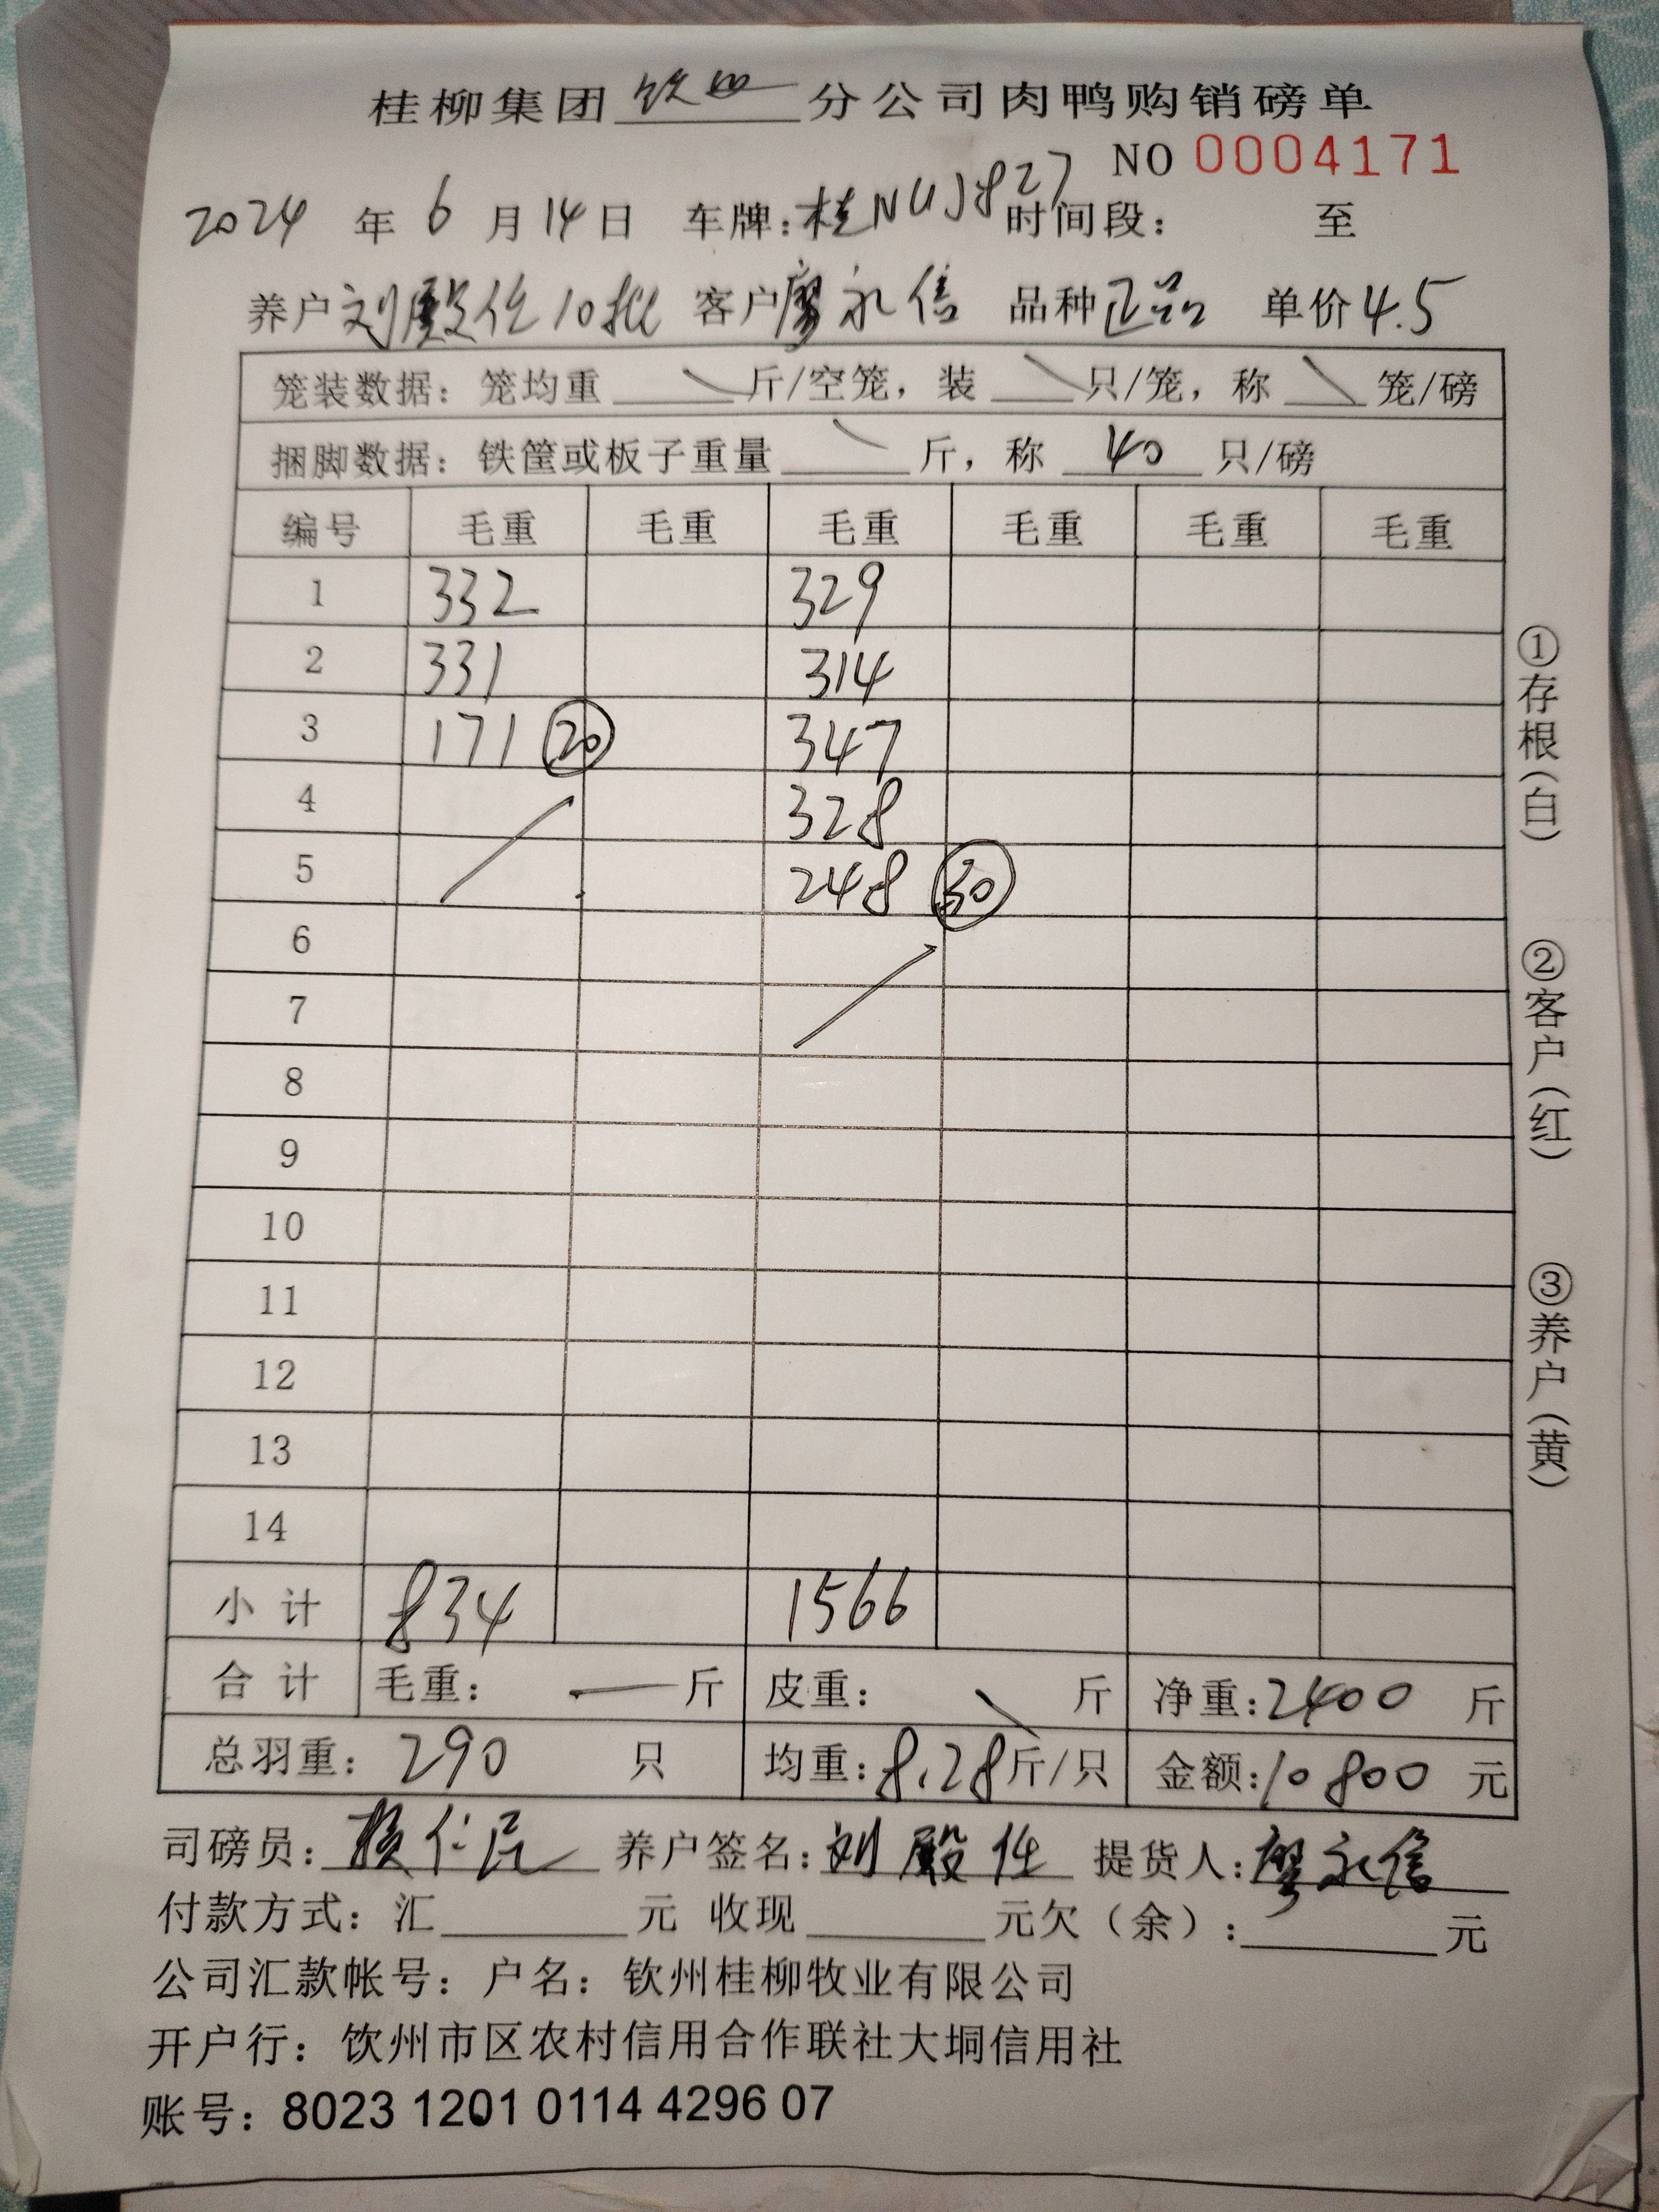 桂柳集团钦四分公司肉鸭购销磅单
NO 0004171
2024 年 6 月 14 日 车牌：桂NUJ827 时间段： 至
养户 刘殿任10批 客户 廖永信 品种 正品 单价 4.5
笼装数据：笼均重 斤/空笼，装 只/笼，称 笼/磅
捆脚数据：铁筐或板子重量 斤，称 40 只/磅
编号 毛重 毛重 毛重 毛重 毛重 毛重
1 332 329
2 331 314
3 171 20 347
4 328
5 248 30
6
7
8
9
10
11
12
13
14
小计 834 1566
合计 毛重： 一 斤 皮重： 斤 净重：2400 斤
总羽重：290 只 均重：8.28斤/只 金额：10800 元
司磅员： 仁 养户签名：刘殿任 提货人：廖永信
付款方式：汇 元 收现 元欠（余）： 元
公司汇款帐号：户名：钦州桂柳牧业有限公司
开户行：钦州市区农村信用合作联社大垌信用社
账号：8023 1201 0114 4296 07
①存根（白）
②客户（红）
③养户（黄）